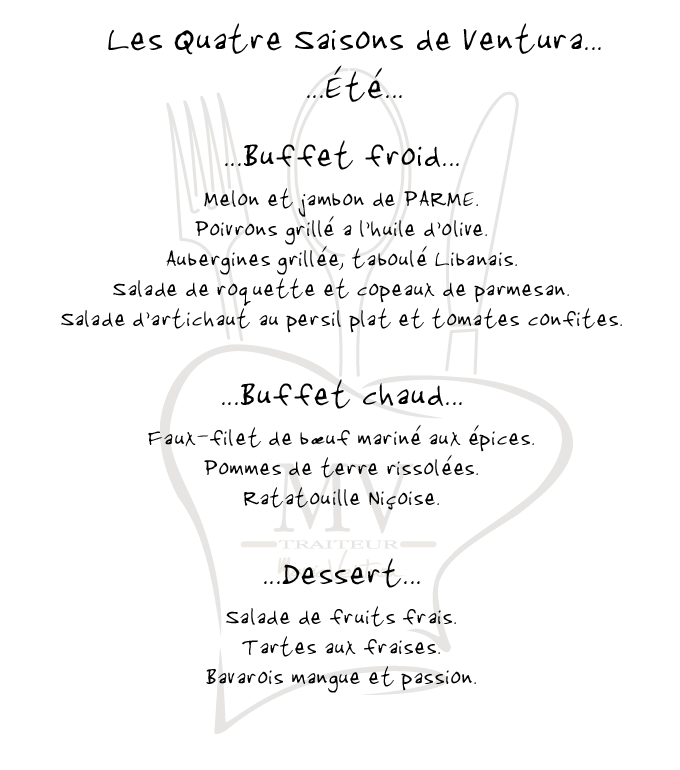 Les Quatre Saisons de Ventura...
...Été...
...Buffet froid...
Melon et jambon de PARME.
Poivrons grillé a l'huile d'olive.
Aubergines grillée, taboulé Libanais.
Salade de roquette et copeaux de parmesan.
Salade d'artichaut au persil plat et tomates confites.
...Buffet chaud...
Faux-filet de bœuf mariné aux épices.
Pommes de terre rissolées.
Ratatouille Niçoise.
MV
TRAITEUR
...Dessert...
Salade de fruits frais.
Tartes aux fraises.
Bavarois mangue et passion.